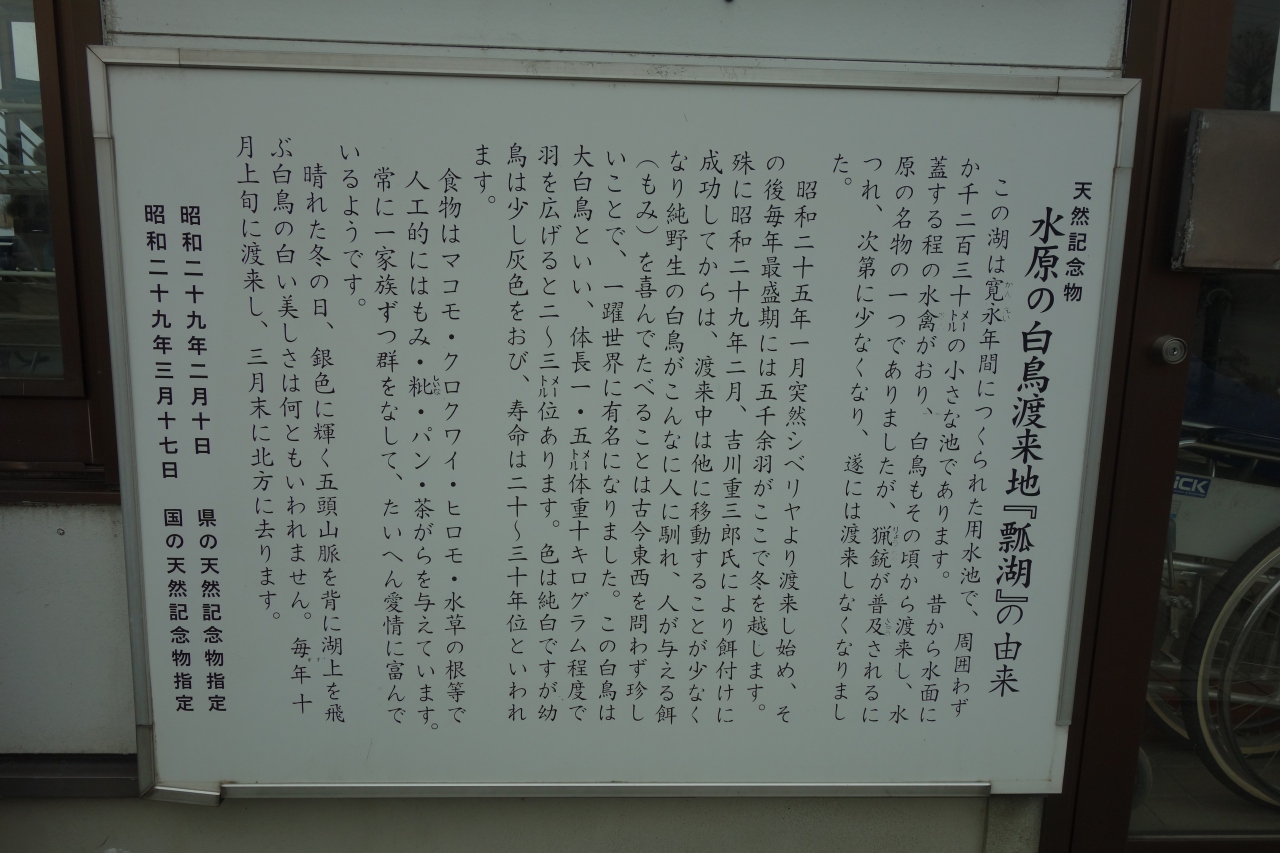 天然記念物
水原の白鳥渡来地『瓢湖』の由来
この湖は寛永年間につくられた用水池で、周囲わず
か千二百三十メートルの小さな池であります。昔から水面に
蓋する程の水禽がおり、白鳥もその頃から渡来し、水
原の名物の一つでありましたが、猟銃が普及されるに
つれ、次第に少なくなり、遂には渡来しなくなりまし
た。
昭和二十五年一月突然シベリヤより渡来し始め、そ
の後毎年最盛期には五千余羽がここで冬を越します。
殊に昭和二十九年二月、吉川重三郎氏により餌付けに
成功してからは、渡来中は他に移動することが少なく
なり純野生の白鳥がこんなに人に馴れ、人が与える餌
（もみ）を喜んでたべることは古今東西を問わず珍し
いことで、一躍世界に有名になりました。この白鳥は
大白鳥といい、体長一・五メートル体重十キログラム程度で
羽を広げると二〜三メートル位あります。色は純白ですが幼
鳥は少し灰色をおび、寿命は二十〜三十年位といわれ
ます。
食物はマコモ・クロクワイ・ヒロモ・水草の根等で
人工的にはもみ・粃・パン・茶がらを与えています。
常に一家族ずつ群をなして、たいへん愛情に富んで
いるようです。
晴れた冬の日、銀色に輝く五頭山脈を背に湖上を飛
ぶ白鳥の白い美しさは何ともいわれません。毎年十
月上旬に渡来し、三月末に北方に去ります。
昭和二十九年二月十日　県の天然記念物指定
昭和二十九年三月十七日　国の天然記念物指定